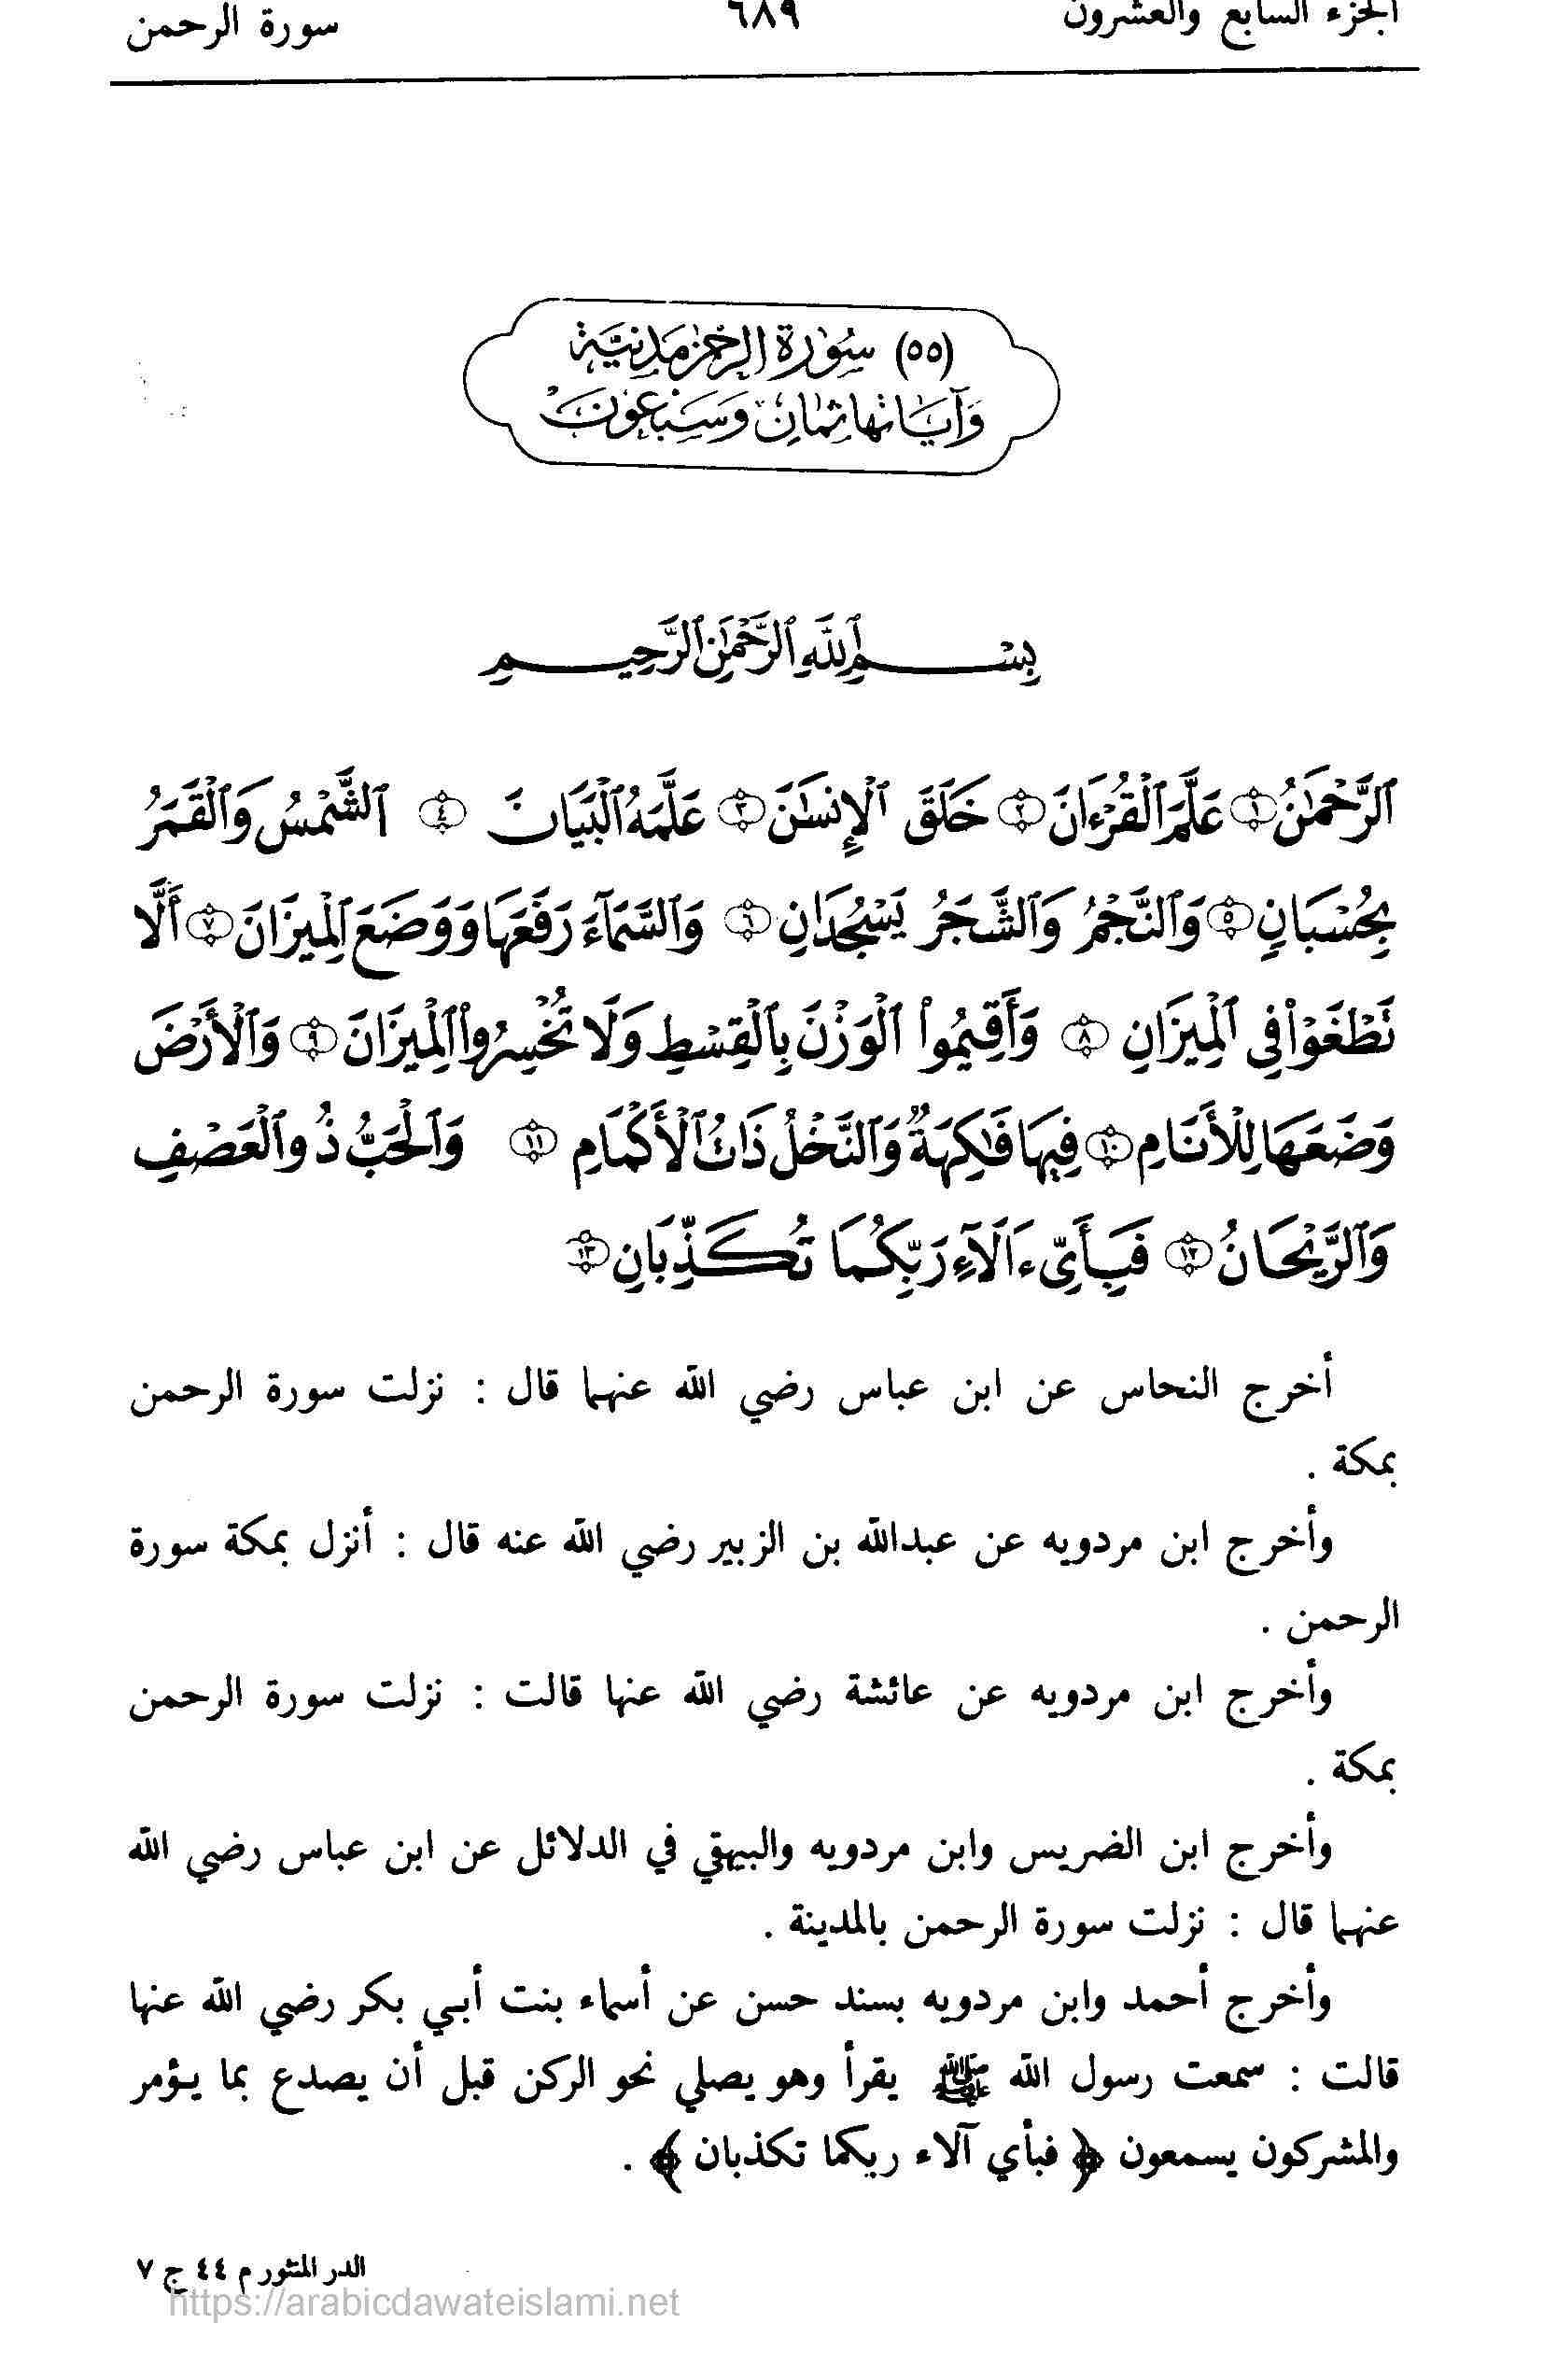 الجزء السابع والعشرون ٦٨٩ سورة الرحمن
(٥٥) سُورَة الرحمن مَدنيَّة
وَآيَاتها ثمَان وَسَبعُونَ
بِسْمِ ٱللَّهِ ٱلرَّحْمَٰنِ ٱلرَّحِيمِ
ٱلرَّحْمَٰنُ ١ عَلَّمَ ٱلْقُرْءَانَ ٢ خَلَقَ ٱلْإِنسَٰنَ ٣ عَلَّمَهُ ٱلْبَيَانَ ٤ ٱلشَّمْسُ وَٱلْقَمَرُ
بِحُسْبَانٍ ٥ وَٱلنَّجْمُ وَٱلشَّجَرُ يَسْجُدَانِ ٦ وَٱلسَّمَآءَ رَفَعَهَا وَوَضَعَ ٱلْمِيزَانَ ٧ أَلَّا
تَطْغَوْا۟ فِى ٱلْمِيزَانِ ٨ وَأَقِيمُوا۟ ٱلْوَزْنَ بِٱلْقِسْطِ وَلَا تُخْسِرُوا۟ ٱلْمِيزَانَ ٩ وَٱلْأَرْضَ
وَضَعَهَا لِلْأَنَامِ ١٠ فِيهَا فَٰكِهَةٌ وَٱلنَّخْلُ ذَاتُ ٱلْأَكْمَامِ ١١ وَٱلْحَبُّ ذُو ٱلْعَصْفِ
وَٱلرَّيْحَانُ ١٢ فَبِأَىِّ ءَالَآءِ رَبِّكُمَا تُكَذِّبَانِ ١٣
أخرج النحاس عن ابن عباس رضي الله عنهما قال : نزلت سورة الرحمن
بمكة .
وأخرج ابن مردويه عن عبدالله بن الزبير رضي الله عنه قال : أنزل بمكة سورة
الرحمن .
وأخرج ابن مردويه عن عائشة رضي الله عنها قالت : نزلت سورة الرحمن
بمكة .
وأخرج ابن الضريس وابن مردويه والبيهقي في الدلائل عن ابن عباس رضي الله
عنهما قال : نزلت سورة الرحمن بالمدينة .
وأخرج أحمد وابن مردويه بسند حسن عن أسماء بنت أبي بكر رضي الله عنها
قالت : سمعت رسول الله ﷺ يقرأ وهو يصلي نحو الركن قبل أن يصدع بما يؤمر
والمشركون يسمعون ﴿ فبأي آلاء ربكما تكذبان ﴾ .
الدر المنثور م ٤٤ ج ٧
https://arabicdawateislami.net